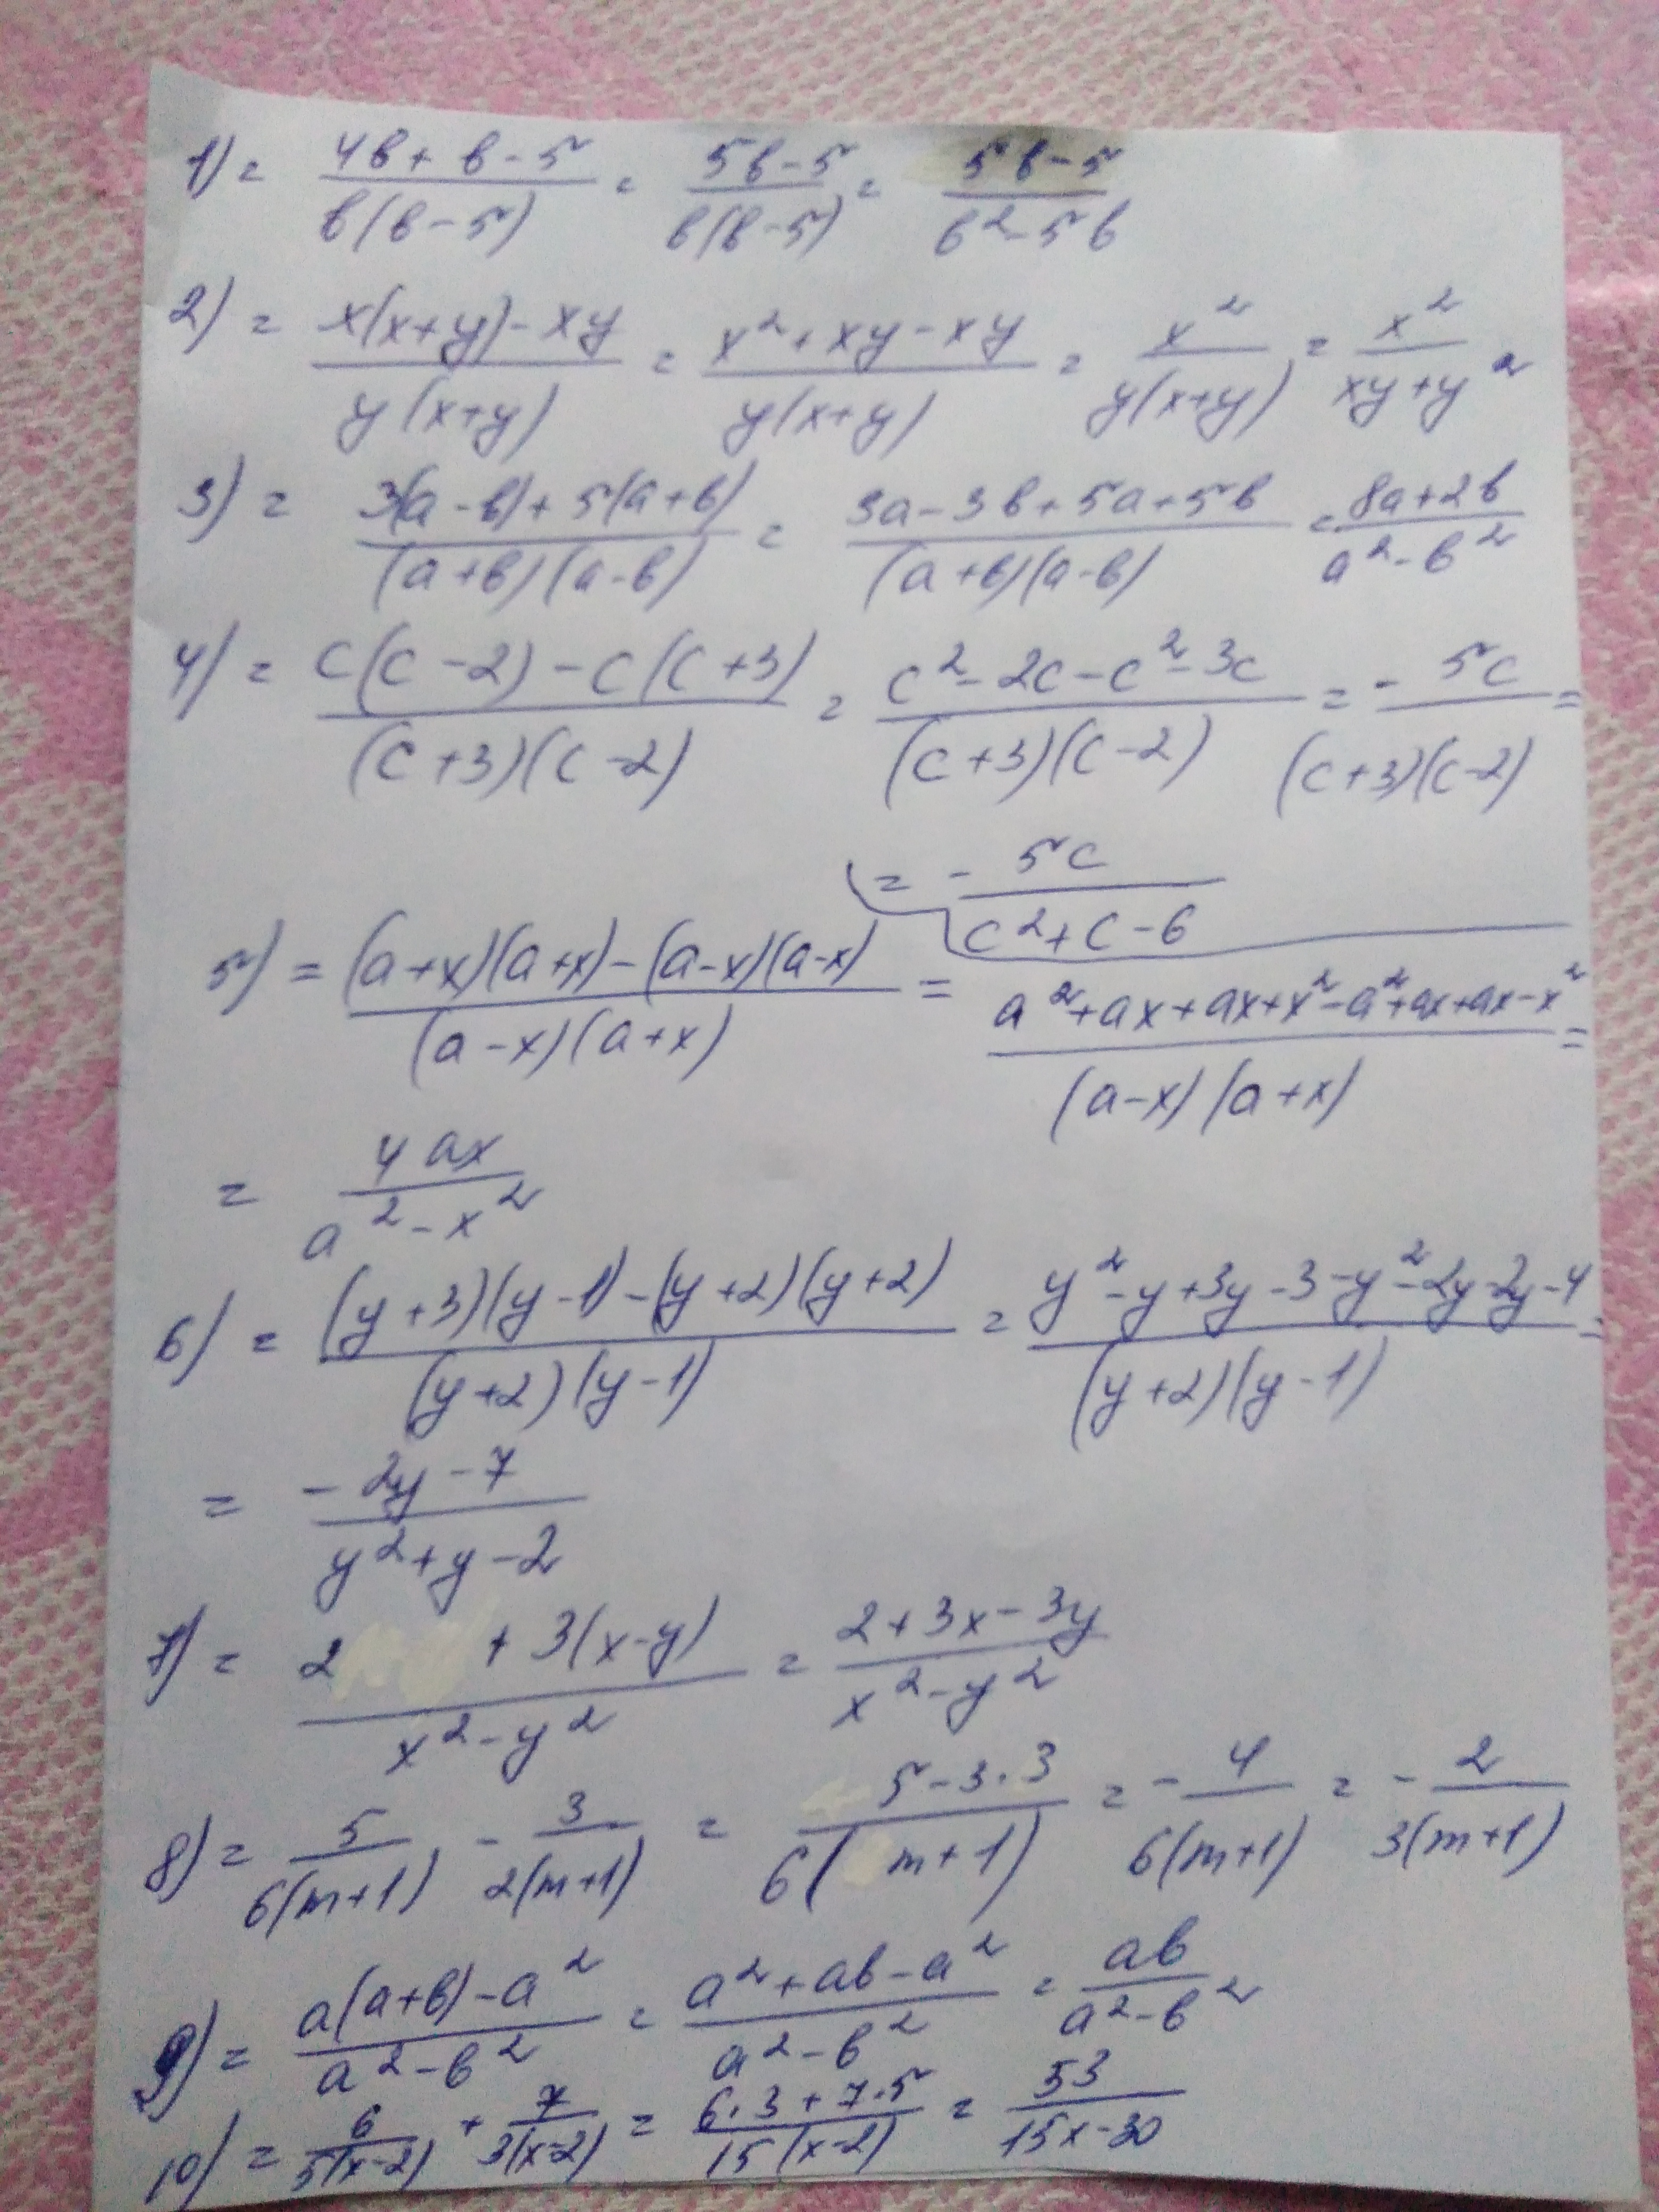 1) = (4b + b - 5)/(b(b - 5)) = (5b - 5)/(b(b - 5)) = (5b - 5)/(b² - 5b)
2) = (x(x+y) - xy)/(y(x+y)) = (x² + xy - xy)/(y(x+y)) = x²/(y(x+y)) = x²/(xy + y²)
3) = (3(a - b) + 5(a + b))/((a + b)(a - b)) = (3a - 3b + 5a + 5b)/((a + b)(a - b)) = (8a + 2b)/(a² - b²)
4) = (c(c - 2) - c(c + 3))/((c + 3)(c - 2)) = (c² - 2c - c² - 3c)/((c + 3)(c - 2)) = - 5c/((c + 3)(c - 2)) =
= - 5c/(c² + c - 6)
5) = ((a + x)(a + x) - (a - x)(a - x))/((a - x)(a + x)) = (a² + ax + ax + x² - a² + ax + ax - x²)/((a - x)(a + x)) =
= 4ax/(a² - x²)
6) = ((y + 3)(y - 1) - (y + 2)(y + 2))/((y + 2)(y - 1)) = (y² - y + 3y - 3 - y² - 2y - 2y - 4)/((y + 2)(y - 1)) =
= (- 2y - 7)/(y² + y - 2)
7) = (2 + 3(x - y))/(x² - y²) = (2 + 3x - 3y)/(x² - y²)
8) = 5/(6(m + 1)) - 3/(2(m + 1)) = (5 - 3 · 3)/(6(m + 1)) = - 4/(6(m + 1)) = - 2/(3(m + 1))
9) = (a(a + b) - a²)/(a² - b²) = (a² + ab - a²)/(a² - b²) = ab/(a² - b²)
10) = 6/(5(x - 2)) + 7/(3(x - 2)) = (6 · 3 + 7 · 5)/(15(x - 2)) = 53/(15x - 30)